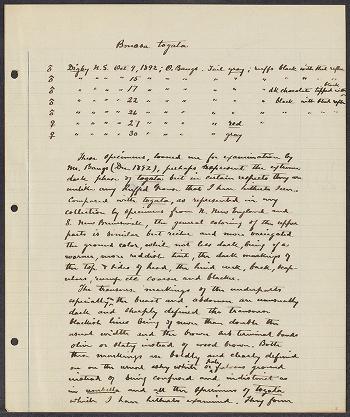 Bonasa togata
♂ Digby N.S. Oct 9, 1892; O. Bangs. Tail gray; ruffs black with bluish reflec
♂ " " " 15 " " " " " " " " "
♂ " " " 17 " " " " " " dk chocolate tipped with black
♂ " " " 22 " " " " " " black with bluish reflec
♂ " " " 26 " " " " " " " " "
♀ " " " 27 " " " " red
♀ " " " 30 " " " " gray
These specimens, loaned me for examination by
Mr. Bangs (Dec. 1892), perhaps represent the extreme
dark phase of togata but in certain respects they are
unlike any Ruffed Grouse that I have hitherto seen.
Compared with togata, as represented in my
collection by specimens from N. New England and
S. New Brunswick, the general coloring of the upper
parts is similar but richer and more variegated
the ground color, while not less dark, being of a
warmer, more reddish tint, the dark markings of
the top & sides of head, the hind neck, back, scap-
ulars, rump etc coarser and blacker.
The transverse markings of the underparts
especially on the breast and abdomen are unusually
dark and sharply defined the transverse
blackish lines being of more than double the
usual width and the brown subterminal bands
olive or slaty instead of wood brown. Both
these markings are boldly and clearly defined
on the usual ashy white or pale fulvous ground
instead of being confused and indistinct as
in umbellus and all the specimens of togata
which I have hitherto examined. They form